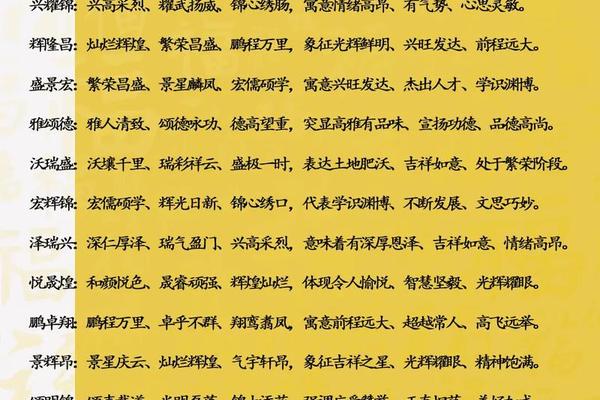 兴耀锦：兴高采烈、耀武扬威、锦心绣肠，寓意情绪高昂、有气势、心思灵敏。
辉隆昌：灿烂辉煌、繁荣昌盛、鹏程万里，象征光辉鲜明、兴旺发达、前程远大。
盛景宏：繁荣昌盛、景星麟凤、宏儒硕学，寓意兴旺发达、杰出人才、学识渊博。
雅颂德：雅人清致、颂德咏功、德高望重，突显高雅有品味、宣扬功德、品德高尚。
沃瑞盛：沃壤千里、瑞彩祥云、盛极一时，表达土地肥沃、吉祥如意、处于繁荣阶段。
宏辉锦：宏儒硕学、辉光日新、锦心绣口，代表学识渊博、不断发展、文思巧妙。
泽瑞兴：深仁厚泽、瑞气盈门、兴高采烈，意味着有深厚恩泽、吉祥如意、情绪高昂。
悦晟煌：和颜悦色、晟睿顽强、辉煌灿烂，体现令人愉悦、智慧坚毅、光辉耀眼。
鹏卓翔：鹏程万里、卓乎不群、翔鸾翥凤，寓意前程远大、超越常人、高飞远举。
景辉昂：景星庆云、灿烂辉煌、气宇轩昂，象征吉祥之星、光辉耀眼、精神饱满。